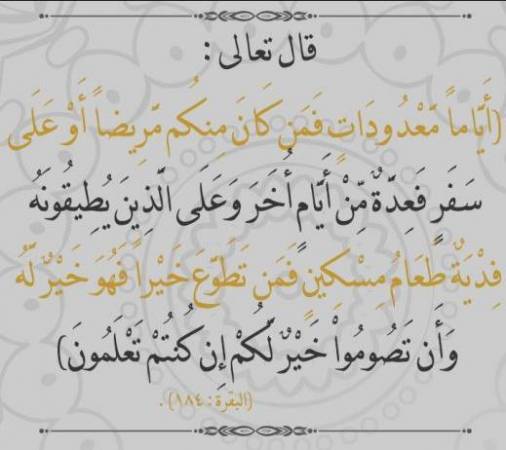 قال تعالى :
(أَيَّاماً مَّعْدُودَاتٍ فَمَن كَانَ مِنكُم مَّرِيضاً أَوْ عَلَى
سَفَرٍ فَعِدَّةٌ مِّنْ أَيَّامٍ أُخَرَ وَعَلَى الَّذِينَ يُطِيقُونَهُ
فِدْيَةٌ طَعَامُ مِسْكِينٍ فَمَن تَطَوَّعَ خَيْراً فَهُوَ خَيْرٌ لَّهُ
وَأَن تَصُومُواْ خَيْرٌ لَّكُمْ إِن كُنتُمْ تَعْلَمُونَ)
(البقرة : ١٨٤) .